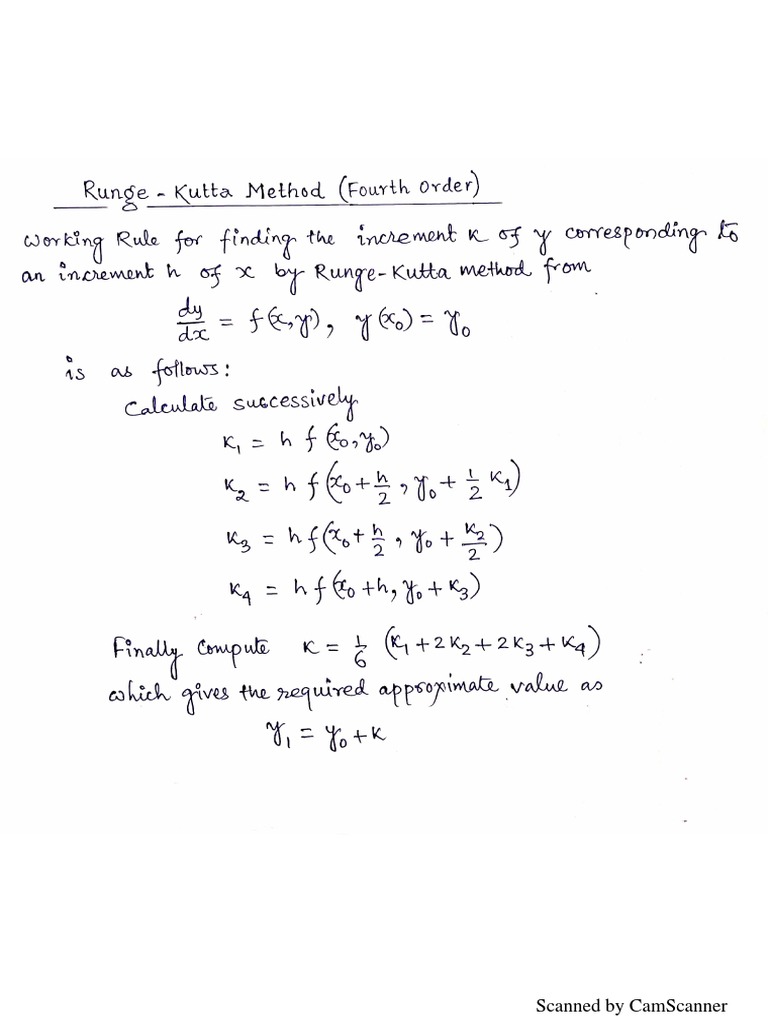 Runge - Kutta Method (Fourth Order)
Working Rule for finding the increment K of y corresponding to
an increment h of x by Runge-Kutta method from
dy/dx = f(x,y), y(x₀) = y₀
is as follows:
Calculate successively
K₁ = h f(x₀, y₀)
K₂ = h f(x₀ + h/2, y₀ + 1/2 K₁)
K₃ = h f(x₀ + h/2, y₀ + K₂/2)
K₄ = h f(x₀ + h, y₀ + K₃)
Finally compute K = 1/6 (K₁ + 2K₂ + 2K₃ + K₄)
which gives the required approximate value as
y₁ = y₀ + K
Scanned by CamScanner